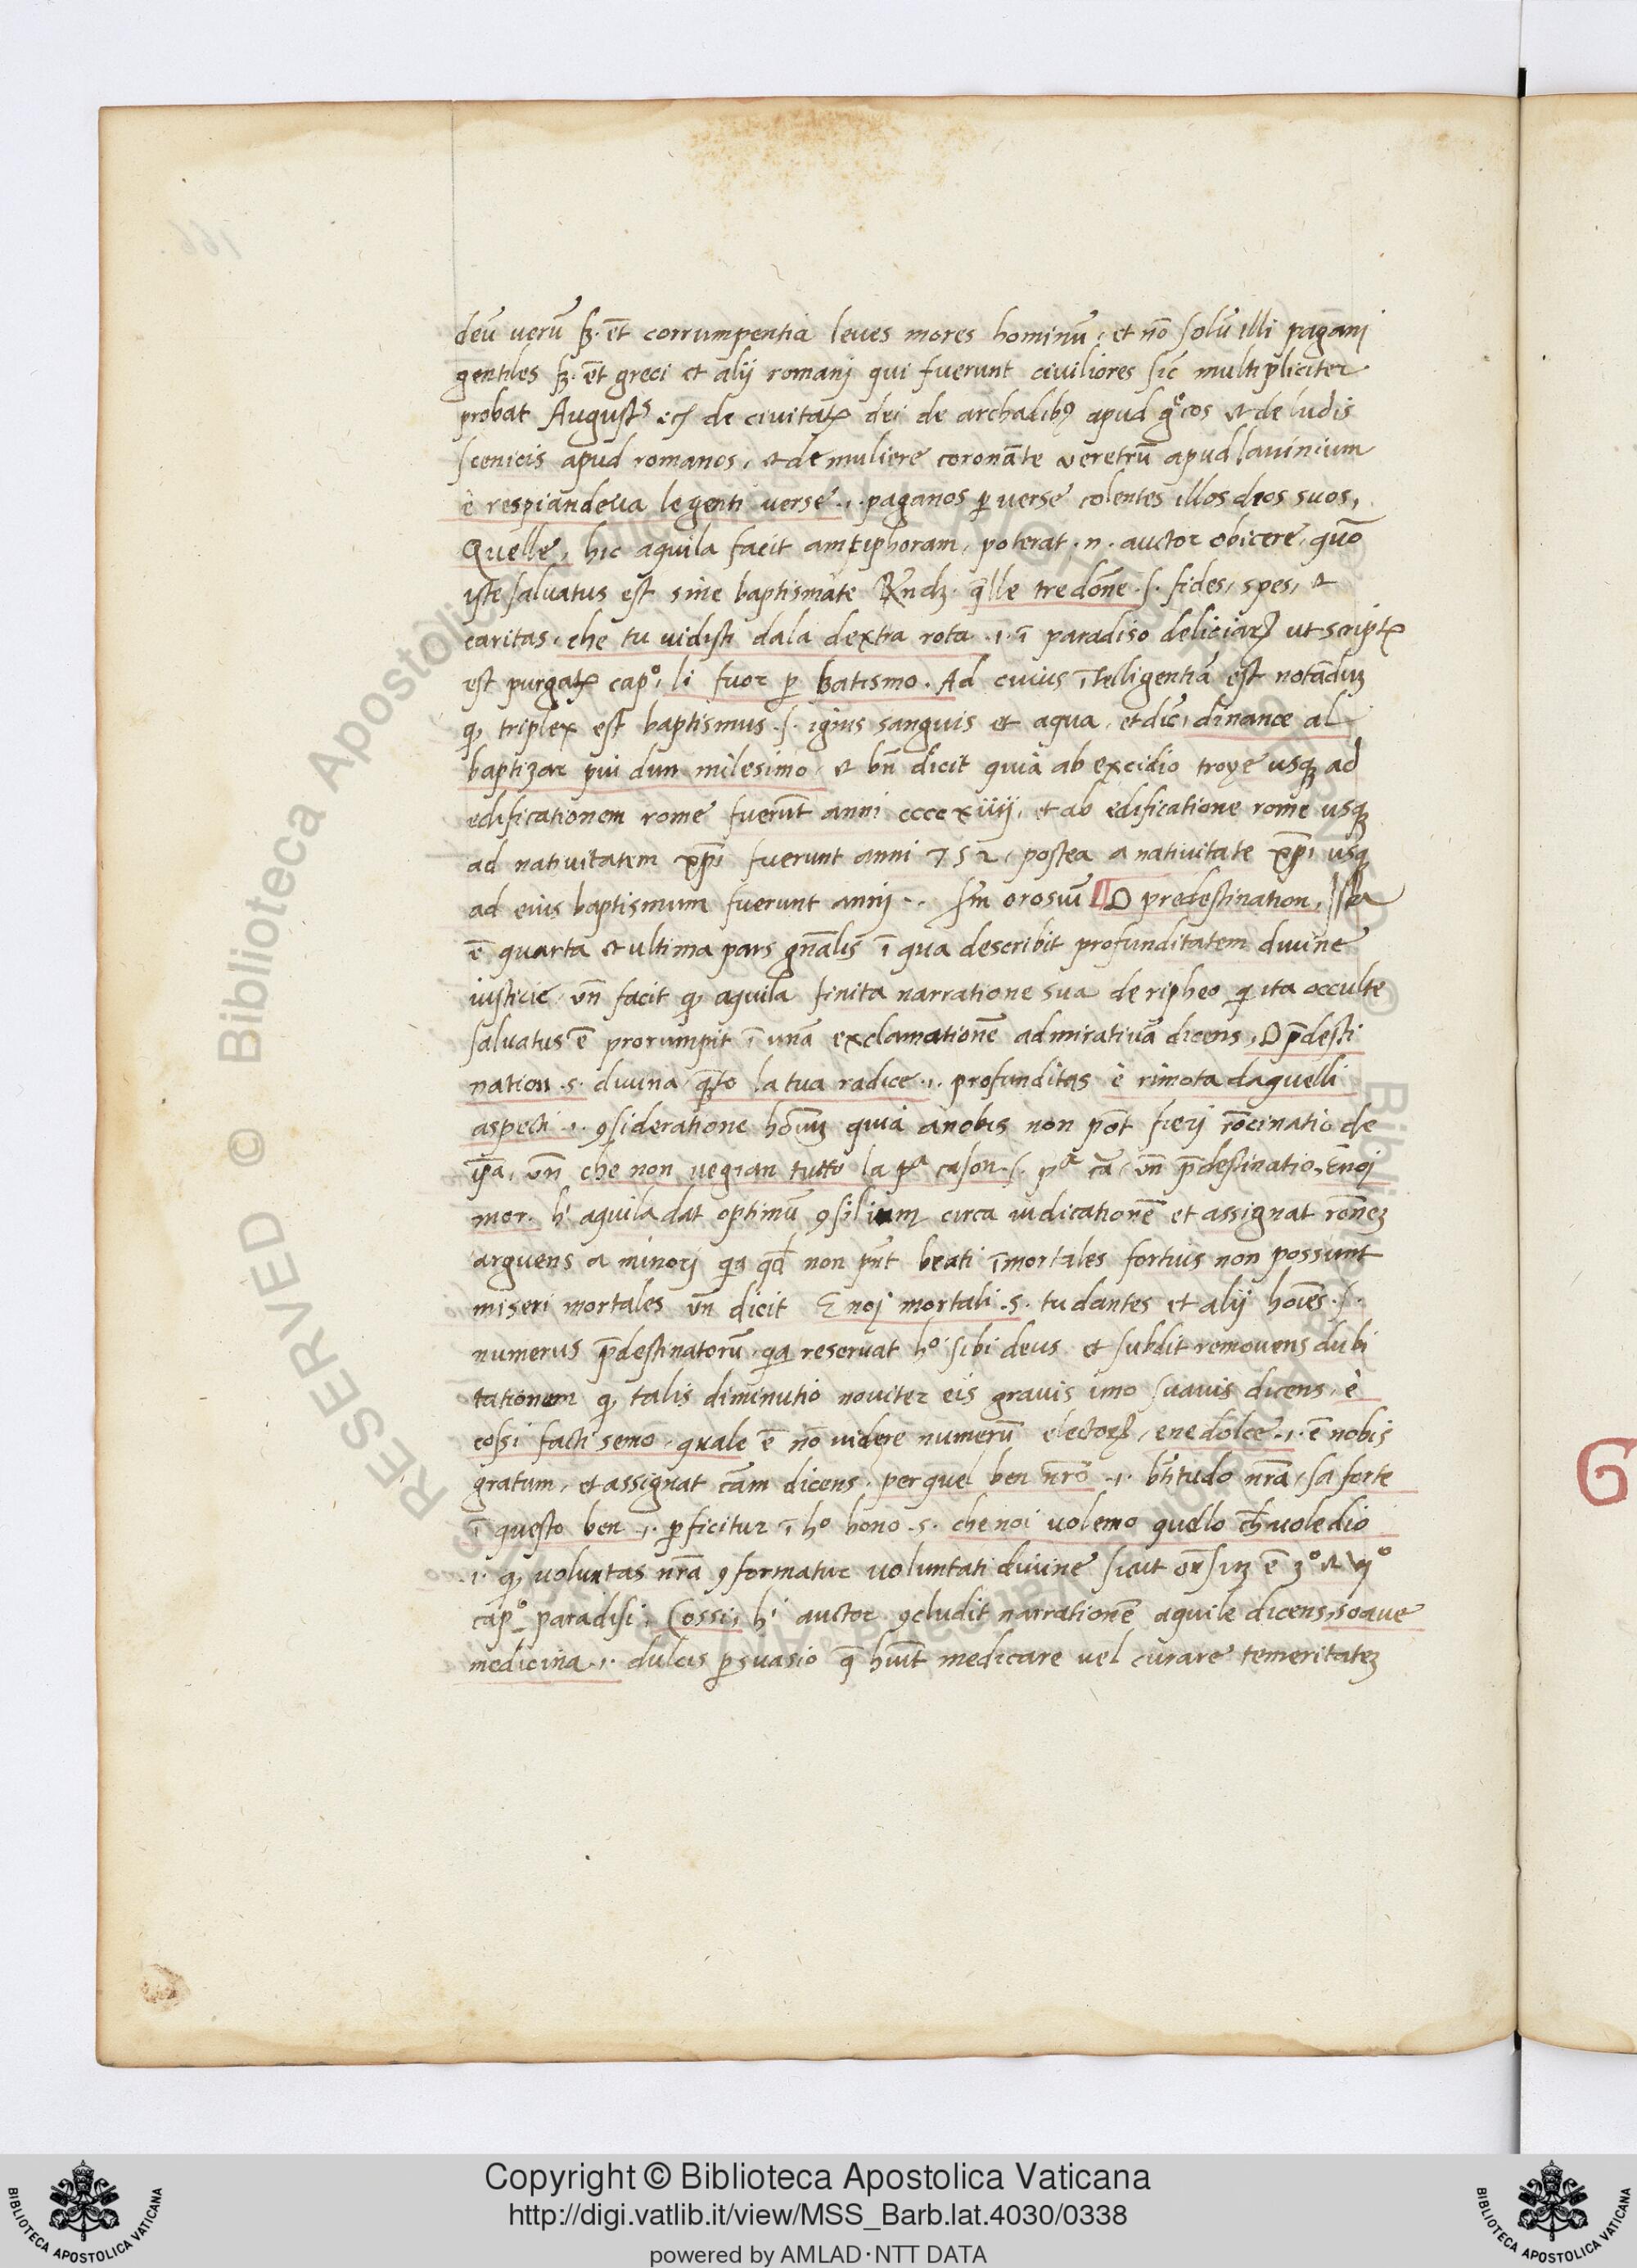 deū verū sꝫ. et̄ corrumpentia leves mores hominū. et nō solū illi pagani
gentiles sꝫ. et̄ greci et alij romanj qui fuerunt civiliores sic̄ multipliciter
probat Augustꝰ de civitate dei de archadibꝰ apud gͤcos et de ludis
scenicis apud romanos, et de muliere coronāte veretrū apud lavinium
è respiandeva le genti verse .i. paganos ꝑverse colentes illos deos suos,
Quelle, hic aquila facit antiphoram, poterat .n. auctor obicere, quō
iste salvatus est sine baptismate Rn̄dꝫ. q̄lle tre dōne .s. fides, spes, et
caritas, che tu vidisti dala dextra rota .i. ī paradiso deliciaꝝ ut scriptꝝ
est purgatꝝ capº, li fuor ꝑ batismo. Ad cuius ītelligentiā est notāduꝫ
ꝙ triplex est baptismus .s. ignis sanguis et aqua, et dic̄, dinance al
baptizar piu dun milesimo, et bn̄ dicit quia ab excidio troye usqꝫ ad
edificationem rome fuerūt anni ccccxiiij. et ab edificatione rome usqꝫ
ad nativitatem xp̄i fuerunt anni 752, postea a nativitate xp̄i usqꝫ
ad eius baptismum fuerunt annj .. sm̄ orosiū O predestination, Ista
ē quarta et ultima pars gn̄alis ī qua describit profunditatem divine
iusticie, vn̄ facit ꝙ aquila finita narratione sua de ripheo q̄ ita occulte
salvatus ē prorumpit ī unā exclamationē admirativā dicens, O p̄desti
nation .s. divina, quāto la tua radice .i. profunditas è rimota da quelli
aspecti .i. ꝯsideratione hoīuꝫ quia a nobis non pōt fierj rōcinatio de
ip̄a, vn̄ che non vegian tutto la pª cason .s. pª cā, vn̄ p̄destinatio, E noj
mor. hⁱ aquila dat optimū ꝯsilium circa iudicationē et assignat rōneꝫ
arguens a minorj qꝫ qd̄ non pn̄t beati īmortales fortius non possunt
miseri mortales vn̄ dicit E noj mortali .s. tu dantes et alij hoīes .s.
numerus p̄destinatorū, qꝫ reservat hº sibi deus et subdit removens dubi
tationem ꝙ talis diminutio noviter eis gravis imo suavis dicens, è
cossi facti semo, quale ē nō videre numerū electoꝝ, ene dolce .i. ē nobis
gratum, et assignat cām dicens, per quel ben nr̄o .i. bt̄itudo nr̄a, sa forte
ī questo ben .i. ꝑficitur ī hº bono .s. che noi volemo quello ch̄ vole dio
.i. ꝙ voluntas nr̄a ꝯformatur voluntati divine sicut ē 3º et
capº paradisi, Cossi, hⁱ auctor ꝯcludit narrationē aquile dicens, soave
medicina .i. dulcis ꝑsuasio q̄ medicare vel curare temeritateꝫ
G
166
Copyright © Biblioteca Apostolica Vaticana
http://digi.vatlib.it/view/MSS_Barb.lat.4030/0338
powered by AMLAD·NTT DATA
BIBLIOTECA APOSTOLICA VATICANA
BIBLIOTECA APOSTOLICA VATICANA